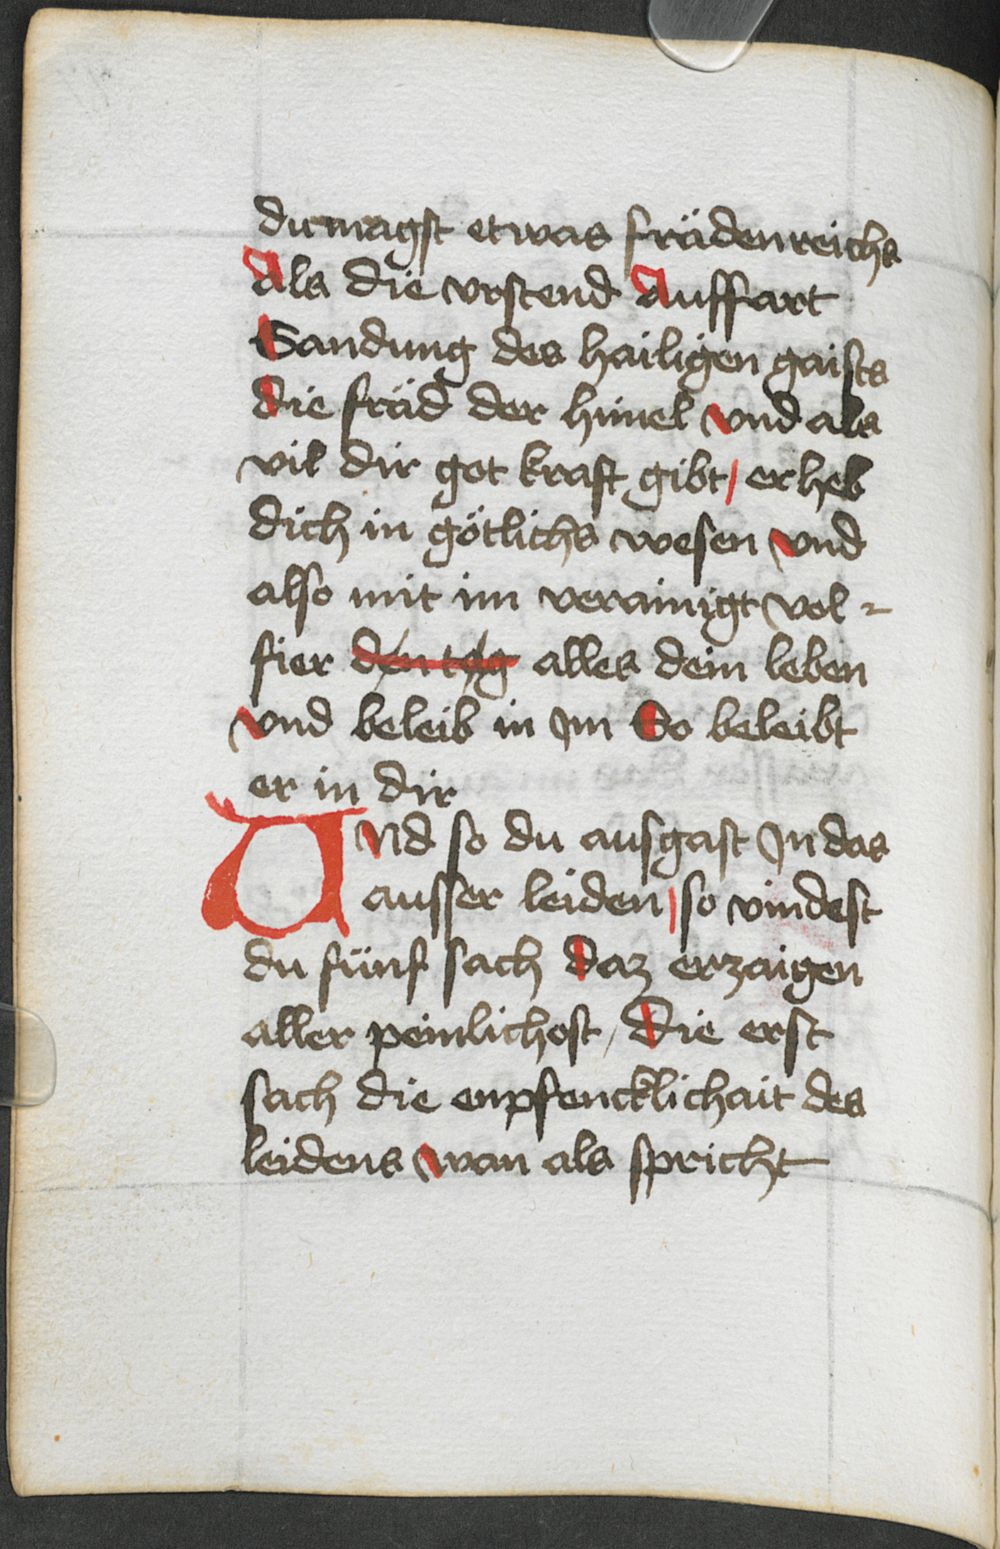 du magst etwas frädenreichs
Als die vrstend Auffart
Sandung des hailigen gaists
die fräd der himel vnd als
vil dir got kraft gibt / erheb
dich in götlichs wesen vnd
also mit im verainigt vol-
fier den tag alles dein leben
vnd beleib in Im So beleibt
er in dir
Vnd so du ausgast In das
ausser leiden / so vindest
du fünf sach daz erzaigen
aller peinlichost / Die erst
sach die enpfencklichait des
leidens wan als spricht